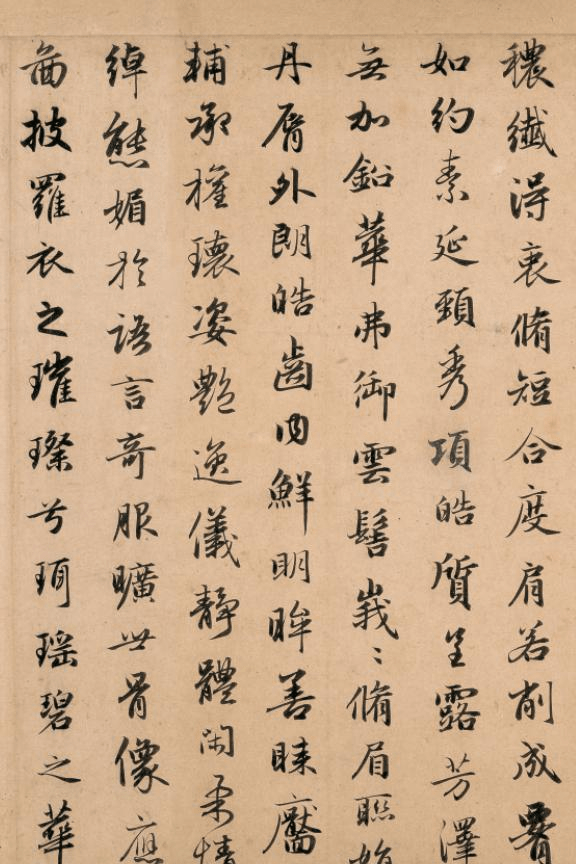 穠纖得衷脩短合度肩若削成腰
如約素延頸秀項皓質呈露芳澤
無加鉛華弗御雲髻峩〻脩眉聯娟
丹脣外朗皓齒内鮮明眸善睞靨
輔承權瓌姿艷逸儀靜體閑柔情
綽態媚於語言奇服曠世骨像應
啚披羅衣之璀璨兮珥瑶碧之華